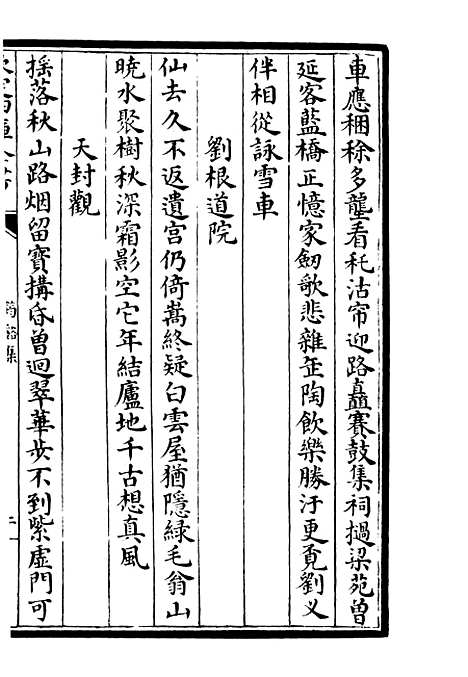 車應稛稌多壟看秏沽帘迎路矗賽鼓集祠撾梁苑曾
延客藍橋正憶家劒歌悲雜缶陶飲樂勝汙更覔劉义
伴相從詠雪車
劉根道院
仙去久不返遺宫仍倚嵩終疑白雲屋猶隱緑毛翁山
曉水聚樹秋深霜影空它年結廬地千古想真風
天封觀
揺落秋山路烟留寳構昏曽迴翠華步不到紫虛門可